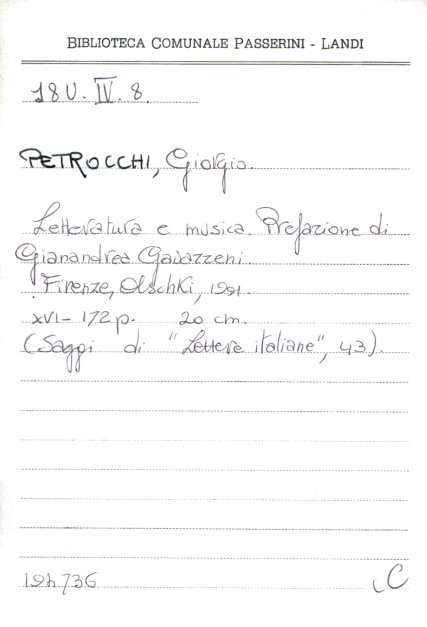 BIBLIOTECA COMUNALE PASSERINI - LANDI
18U. IV. 8.
PETROCCHI, Giorgio.
Letteratura e musica. Prefazione di
Gianandrea Gavazzeni.
Firenze, Olschki, 1991.
XVI- 172 p. 20 cm.
(Saggi di "Lettere italiane", 43).
194736
C